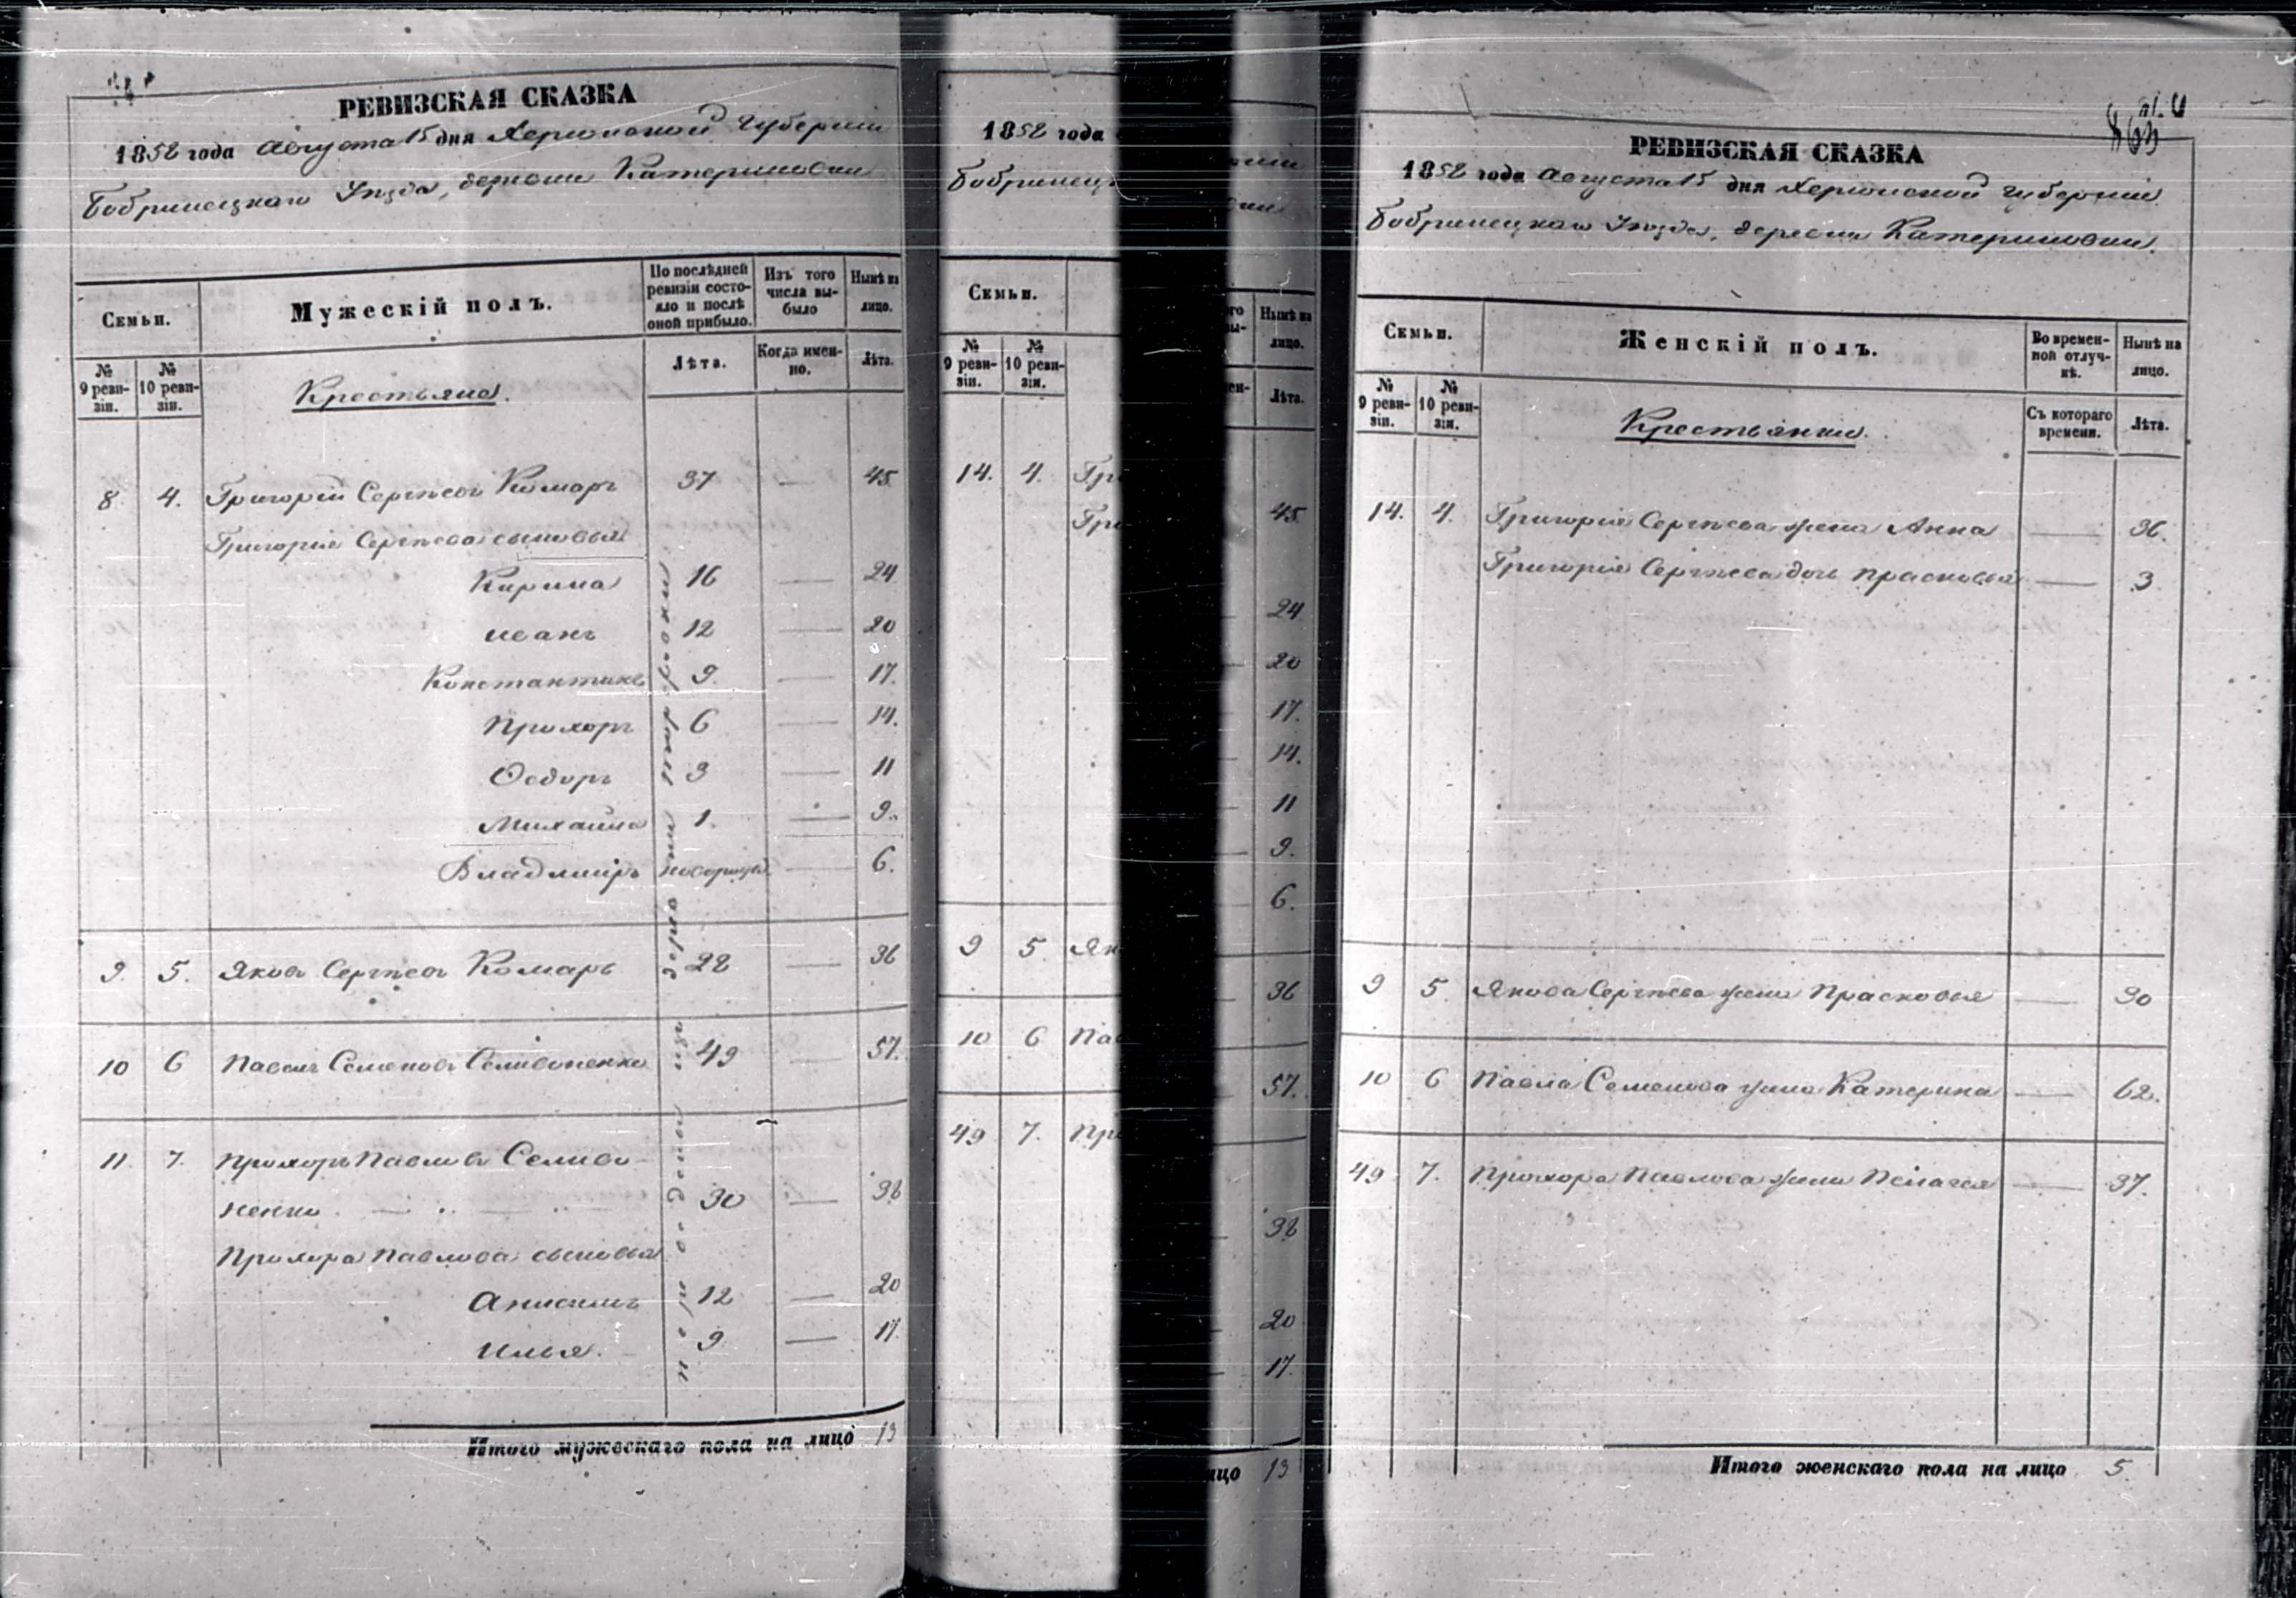 РЕВИЗСКАЯ СКАЗКА
1858 года Августа 15 дня Херсонской Губернии
Бобринецкаго Уѣзда, деревни Катериновки
Семьи.
Мужескій полъ.
По послѣдней ревизіи состояло и послѣ оной прибыло.
Изъ того числа выбыло
Нынѣ на лицо.
№ 9 ревизіи.
№ 10 ревизіи.
Крестьяне.
Лѣта.
Когда именно.
Лѣта.
8. 4. Григорій Сергѣевъ Комаръ 37 — 45
Григорія Сергѣева сыновья
Кирила 16 — 24
Иванъ 12 — 20
Константинъ 9. — 17.
Прохоръ 6 — 14.
Ѳедоръ 3 — 11
Михайла 1. — 9.
Владиміръ новорожд. — 6.
9. 5. Яковъ Сергѣевъ Комаръ 28 — 36
10 6 Павелъ Семеновъ Селивоненко 49 — 57.
11. 7. Прохоръ Павловъ Селиво-
ненко 30 — 38
Прохора Павлова сыновья
Анисимъ 12 — 20
Илья. 9 — 17.
переведены изъ
Итого мужескаго пола на лицо 13
1858 года
Бобринец
Семьи.
№ 9 ревизіи.
№ 10 ревизіи.
14. 4. Гри
Гри
9 5. Як
10 6 Пав
49 7. Про
Нынѣ на лицо.
Лѣта.
45
24
20
17.
14.
11
9.
6.
36
57.
38
20
17.
ицо 13
863
РЕВИЗСКАЯ СКАЗКА
1858 года Августа 15 дня Херсонской Губерніи
Бобринецкаго Уѣзда, деревни Катериновки.
Семьи.
Женскій полъ.
Во временной отлучкѣ.
Нынѣ на лицо.
№ 9 ревизіи.
№ 10 ревизіи.
Крестьянки.
Съ котораго времени.
Лѣта.
14. 4. Григорія Сергѣева жена Анна — 36.
Григорія Сергѣева дочь Прасковья — 3
9 5. Якова Сергѣева жена Прасковья — 30
10 6 Павла Семенова жена Катерина — 62.
49 7. Прохора Павлова жена Пелагея — 37.
Итого женскаго пола на лицо 5.